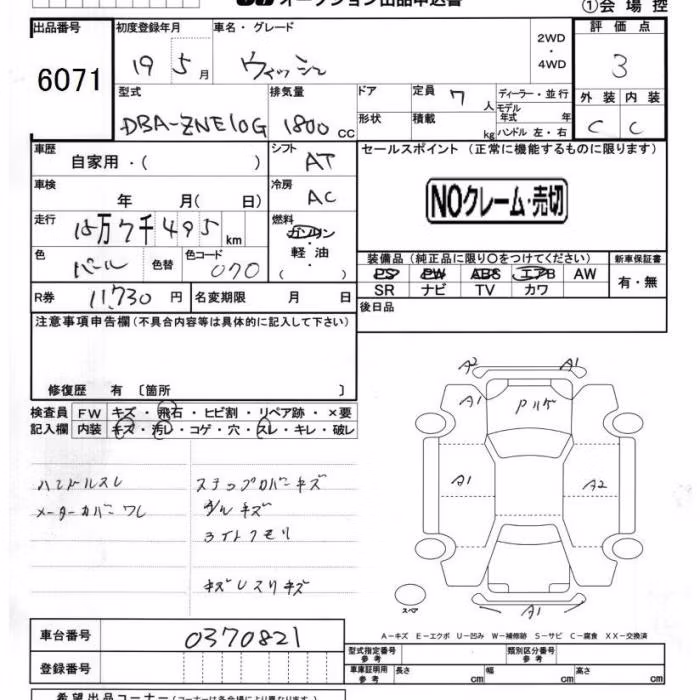 オークション出品申込書
①会場控
出品番号 初度登録年月 車名・グレード 評価点
6071 19 5月 ウィッシュ 2WD・4WD 3
型式 排気量 ドア 定員 7人 ディーラー・並行 外装 内装
DBA-ZNE10G 1800cc 形状 積載 kg モデル年式 年 ハンドル 左・右 C C
車歴 自家用・( ) シフト AT セールスポイント (正常に機能するものに限ります)
車検 年 月( 日) 冷房 AC NOクレーム・売切
走行 15万7千495km 燃料 ガソリン・軽油・( )
色 パール 色替 色コード 070
装備品 (純正品に限り〇をつけてください) 新車保証書
PS PW ABS エアB AW 有・無
SR ナビ TV カワ
R券 11,730円 名変期限 月 日 後日品
注意事項申告欄 (不具合内容等は具体的に記入して下さい)
修復歴 有 〔箇所 〕
検査員 FW キズ・飛石・ヒビ割・リペア跡・×要
記入欄 内装 キズ・汚レ・コゲ・穴・スレ・キレ・破レ
ハンドルスレ ステップカバーキズ
メーターカバーワレ
ライトクモリ
A2 A1
A1
A1 A2
スペア A1
A-キズ E-エクボ U-凹み W-補修跡 S-サビ C-腐食 XX-交換済
車台番号 0370821
型式指定番号 参考 類別区分番号 参考
登録番号
車庫証明用 参考 長さ cm 幅 cm 高さ cm
希望出品コーナー (コーナーは各会場により異なります)